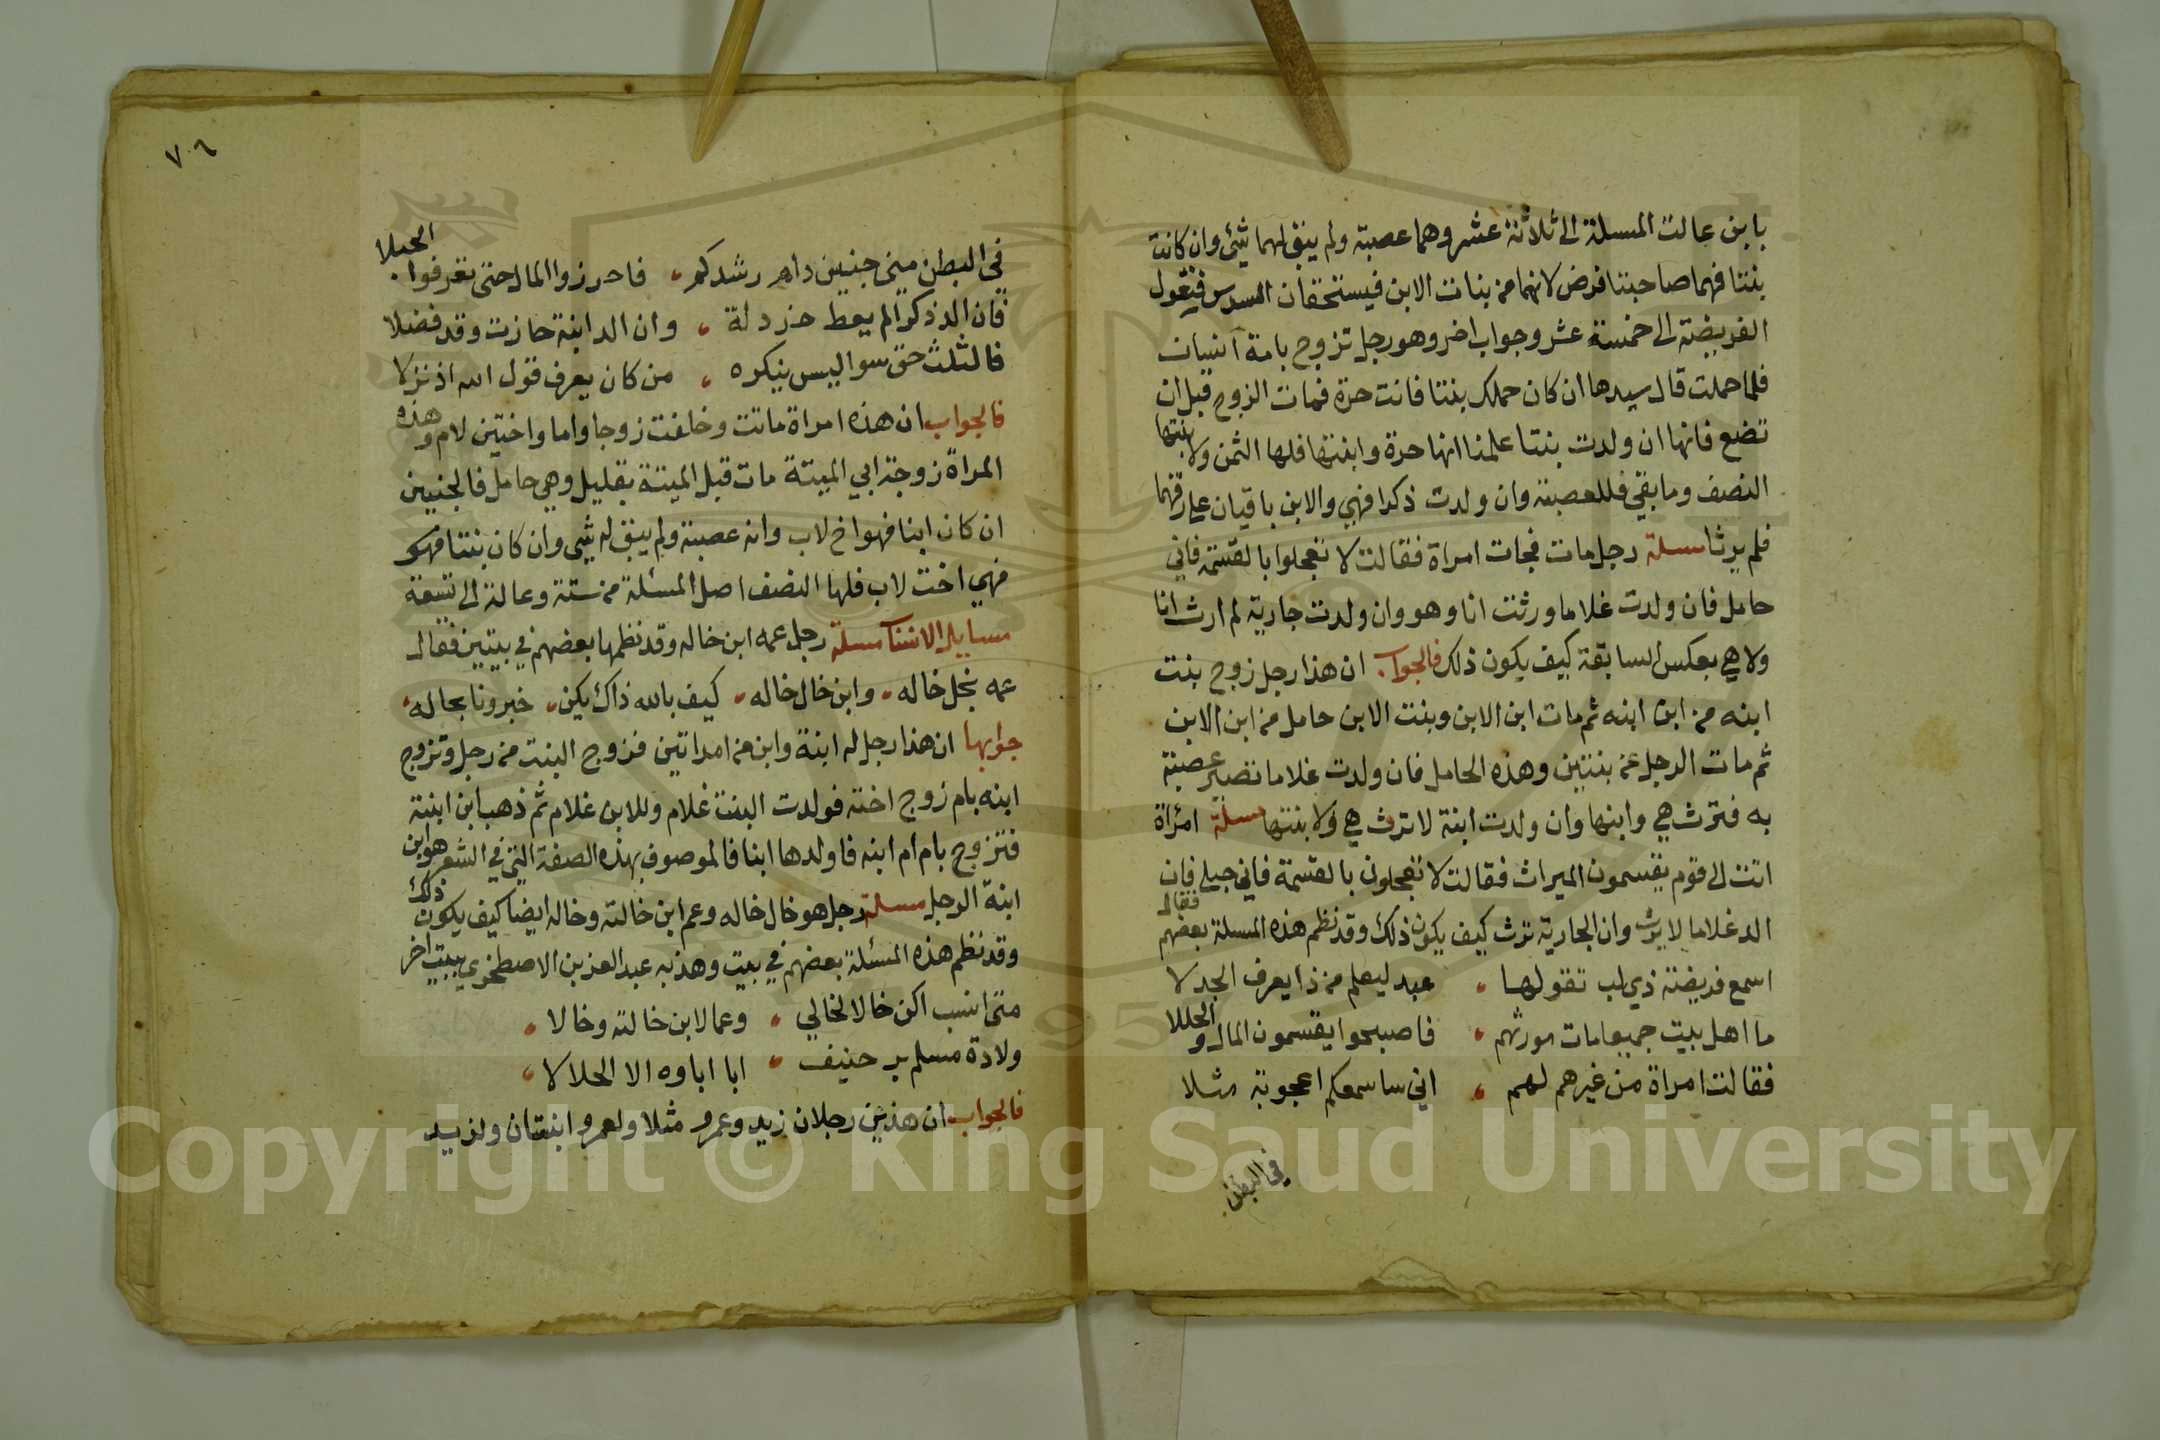 باين عالت المسلة الى ثلاثة عشر وهما عصبة ولم يبق لهما شئ وان كانت
بنتا فهما صاحبتا فرض لانهما من بنات الابن فيستحقان السدس فتعول
الفريضة الى خمسة عشر وجواب اخر وهو رجل تزوج بامة انسان
فلما حملت قال سيدها ان كان حملك بنتا فانت حرة فمات الزوج قبل ان
تضع فانها ان ولدت بنتا علمنا انها حرة وابنتها فلها الثمن ولابنتها
النصف وما بقي فللعصبة وان ولدت ذكرا فهي والابن باقيان على رقهما
فلم يرثا مسلة رجل مات فجات امراة فقالت لا تعجلوا بالقسمة فاني
حامل فان ولدت غلاما ورثت انا وهو وان ولدت جارية لم ارث انا
ولا هي بعكس السابقة كيف يكون ذلك فالجواب ان هذا رجل زوج بنت
ابنه من ابن ابنه ثم مات ابن الابن وبنت الابن حامل من ابن الابن
ثم مات الرجل عن بنتين وهذه الحامل فان ولدت غلاما تصير عصبة
به فترث هي وابنها وان ولدت ابنة لا ترث هي ولا بنتها مسلة امراة
اتت الى قوم يقسمون الميراث فقالت لا تعجلون بالقسمة فاني حبلى فان
الد غلاما لا يرث وان الجارية ترث كيف يكون ذلك وقد نظم هذه المسلة بعضهم فقال
اسمع فريضة ذي لب تقولها عبد ليعلم من ذا يعرف الجدلا
ما اهل بيت جميعا مات مورثهم فاصبحوا يقسمون المال والحللا
فقالت امراة من غيرهم لهم اني ساسمعكم اعجوبة مثلا
في البطن
٧٠٦
في البطن مني جنين دام رشدكم فاحرزوا المال حتى تعرفوا الحبلا
فان الد ذكرا لم يعط خردلة وان الد ابنة حازت وقد فضلا
فالثلث حق سوا ليس ينكره من كان يعرف قول الله اذ نزلا
فالجواب ان هذه امراة ماتت وخلفت زوجا واما واختين لام وهذه
المراة زوجة ابي الميتة مات قبل الميتة بقليل وهي حامل فالجنين
ان كان ابنا فهو اخ لاب وانه عصبة ولم يبق له شي وان كان بنتا فهو
فهي اخت لاب فلها النصف اصل المسئلة من ستة وعالة الى تسعة
مسايل الانساب مسلة رجل عمه ابن خاله وقد نظمها بعضهم في بيتين فقال
عمه نجل خاله وابن خال خاله كيف بالله ذاك يكن خبرونا بحاله
جوابها ان هذا رجل له ابنة وابن من امراتين فزوج البنت من رجل وتزوج
ابنه بام زوج اخته فولدت البنت غلام وللابن غلام ثم ذهب ابن ابنته
فتزوج بام ام ابنه فاولدها ابنا فالموصوف بهذه الصفة التي في الشعر هو ابن
ابنة الرجل مسلة رجل هو خال خاله وعم ابن خالته وخاله ايضا كيف يكون ذلك
وقد نظم هذه المسئلة بعضهم في بيت وهذبه عبد العز بن الاصطخري ببيت اخر
متى انسب اكن خالا لخالي وعما لابن خالته وخالا
ولادة مسلم بر حنيف ابا اباوه الا الحلالا
فالجواب ان هذين رجلان زيد وعمرو مثلا ولعمرو ابنتان ولزيد
Copyright © King Saud University